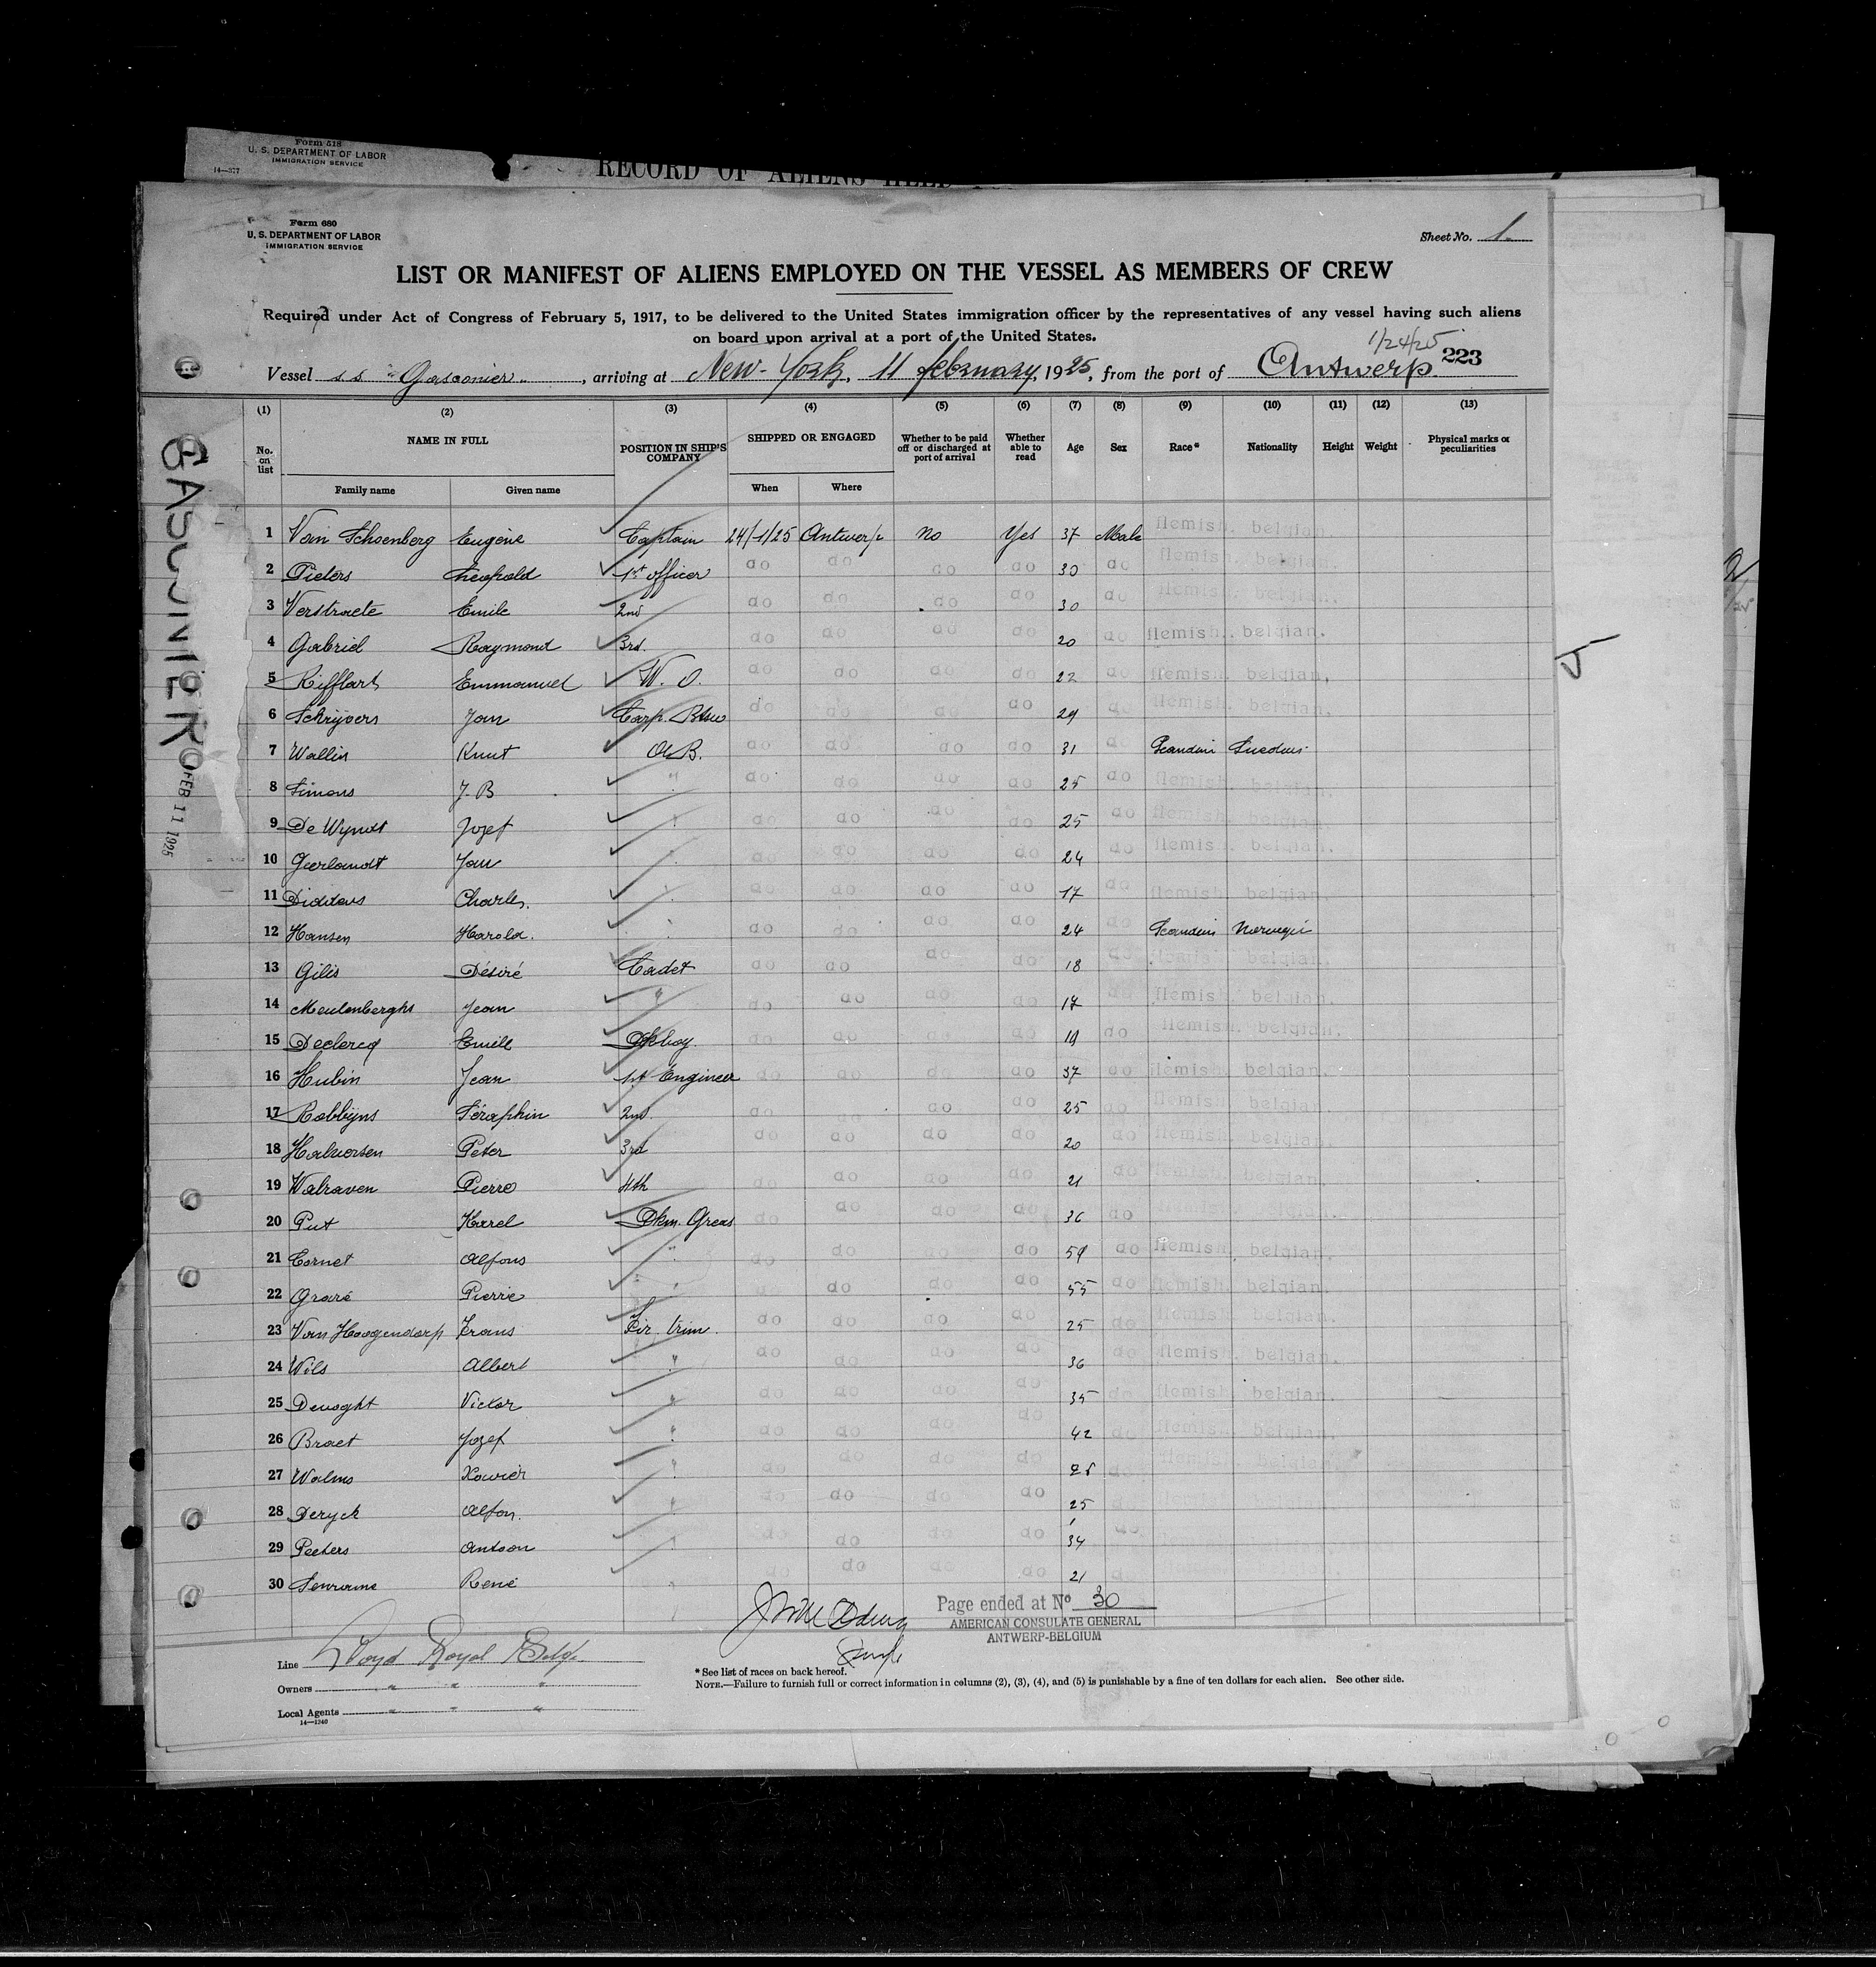 Form 518
U. S. DEPARTMENT OF LABOR
IMMIGRATION SERVICE
14—377
RECORD OF ALIENS HELD
Form 680
U. S. DEPARTMENT OF LABOR
IMMIGRATION SERVICE
Sheet No. 1
LIST OR MANIFEST OF ALIENS EMPLOYED ON THE VESSEL AS MEMBERS OF CREW
Required under Act of Congress of February 5, 1917, to be delivered to the United States immigration officer by the representatives of any vessel having such aliens
on board upon arrival at a port of the United States.
1/24/25
Vessel s.s "Gasconier", arriving at New-York, 11 february, 1925, from the port of Antwerp. 223
(1) (2) (3) (4) (5) (6) (7) (8) (9) (10) (11) (12) (13)
No. on list NAME IN FULL POSITION IN SHIP'S COMPANY SHIPPED OR ENGAGED Whether to be paid off or discharged at port of arrival Whether able to read Age Sex Race* Nationality Height Weight Physical marks or peculiarities
Family name Given name When Where
1 Van Schoenberg Eugène Captain 24/1/25 Antwerp No Yes 37 Male flemish. belgian
2 Pieters Leopold 1st officer do do do do 30 do flemish. belgian.
3 Verstraete Emile 2nd do do do do 30 do flemish. belgian.
4 Gabriel Raymond 3rd. do do do do 20 do flemish. belgian.
5 Rifflart Emmanuel W. O. do do do do 22 do flemish. belgian.
6 Schrijvers Jan Carp. do do do do 29 do flemish. belgian.
7 Wallin Knut A.B. do do do do 31 Scandin
8 Simons J. B " do do do do 25 do flemish. belgian.
9 De Wyndt Jozef " do do do do 25 do flemish. belgian.
10 Geerlandt Jan " do do do do 24 do flemish. belgian.
11 Charles. " do do do do 17 do flemish. belgian.
12 Hansen Harold. " do do do do 24 do Scandin Norwegi
13 Gilis Désiré Cadet do do do do 18 do flemish. belgian.
14 Meulenberghs Jean " do do do do 17 do flemish. belgian.
15 Declercq Emile Dkboy do do do do 19 do flemish. belgian.
16 Hubin Jean 1st Engineer do do do do 37 do flemish. belgian.
17 Robbijns Séraphin 2nd. do do do do 25 do flemish. belgian
18 Halvorsen Peter 3rd do do do do 20 do flemish. belgian
19 Walraven Pierre 4th do do do do 21 do flemish. belgian
20 Put Karel Dkm. Greas do do do do 36 do flemish. belgian.
21 Cornet Alfons " do do do do 59 do flemish. belgian.
22 Graré Pierre " do do do 55 do flemish. belgian.
23 Van Hoogendorp Frans Fir. trim. do do do do 25 do flemish. belgian.
24 Wils Albert " do do do do 36 do flemish. belgian.
25 Victor " do do do do 35 do flemish. belgian.
26 Braet Jozef " do do do do 42 do flemish. belgian.
27 Walms Xavier " do do do do do belgian
28 Deryck Alfon. " do do do do 25
29 Peeters Antoon " do do do do 34 do
30 René " do do do do 21 do
Page ended at No 30
AMERICAN CONSULATE GENERAL
ANTWERP-BELGIUM
Line Lloyd Royal Belge
Owners " " "
Local Agents " " "
14—1240
* See list of races on back hereof.
NOTE.—Failure to furnish full or correct information in columns (2), (3), (4), and (5) is punishable by a fine of ten dollars for each alien. See other side.
GASCONIER
FEB 11 1925